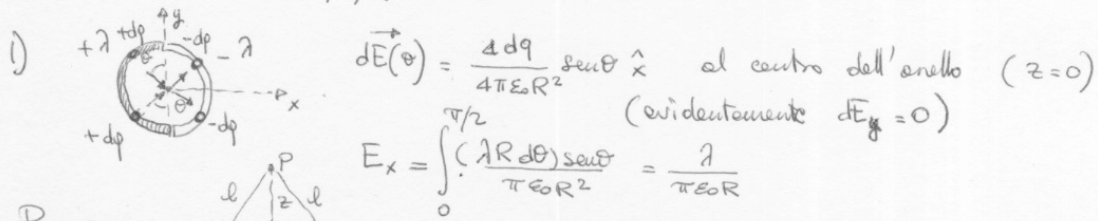 1) +λ +dq y -dq -λ
θ θ x
+dq -dq
dE⃗(θ) = 4dq/4πε₀R² senθ x̂ al centro dell'anello (z=0)
(evidentemente dE_y = 0)
E_x = ∫₀^{π/2} (λR dθ) senθ/πε₀R² = λ/πε₀R
P
l z l